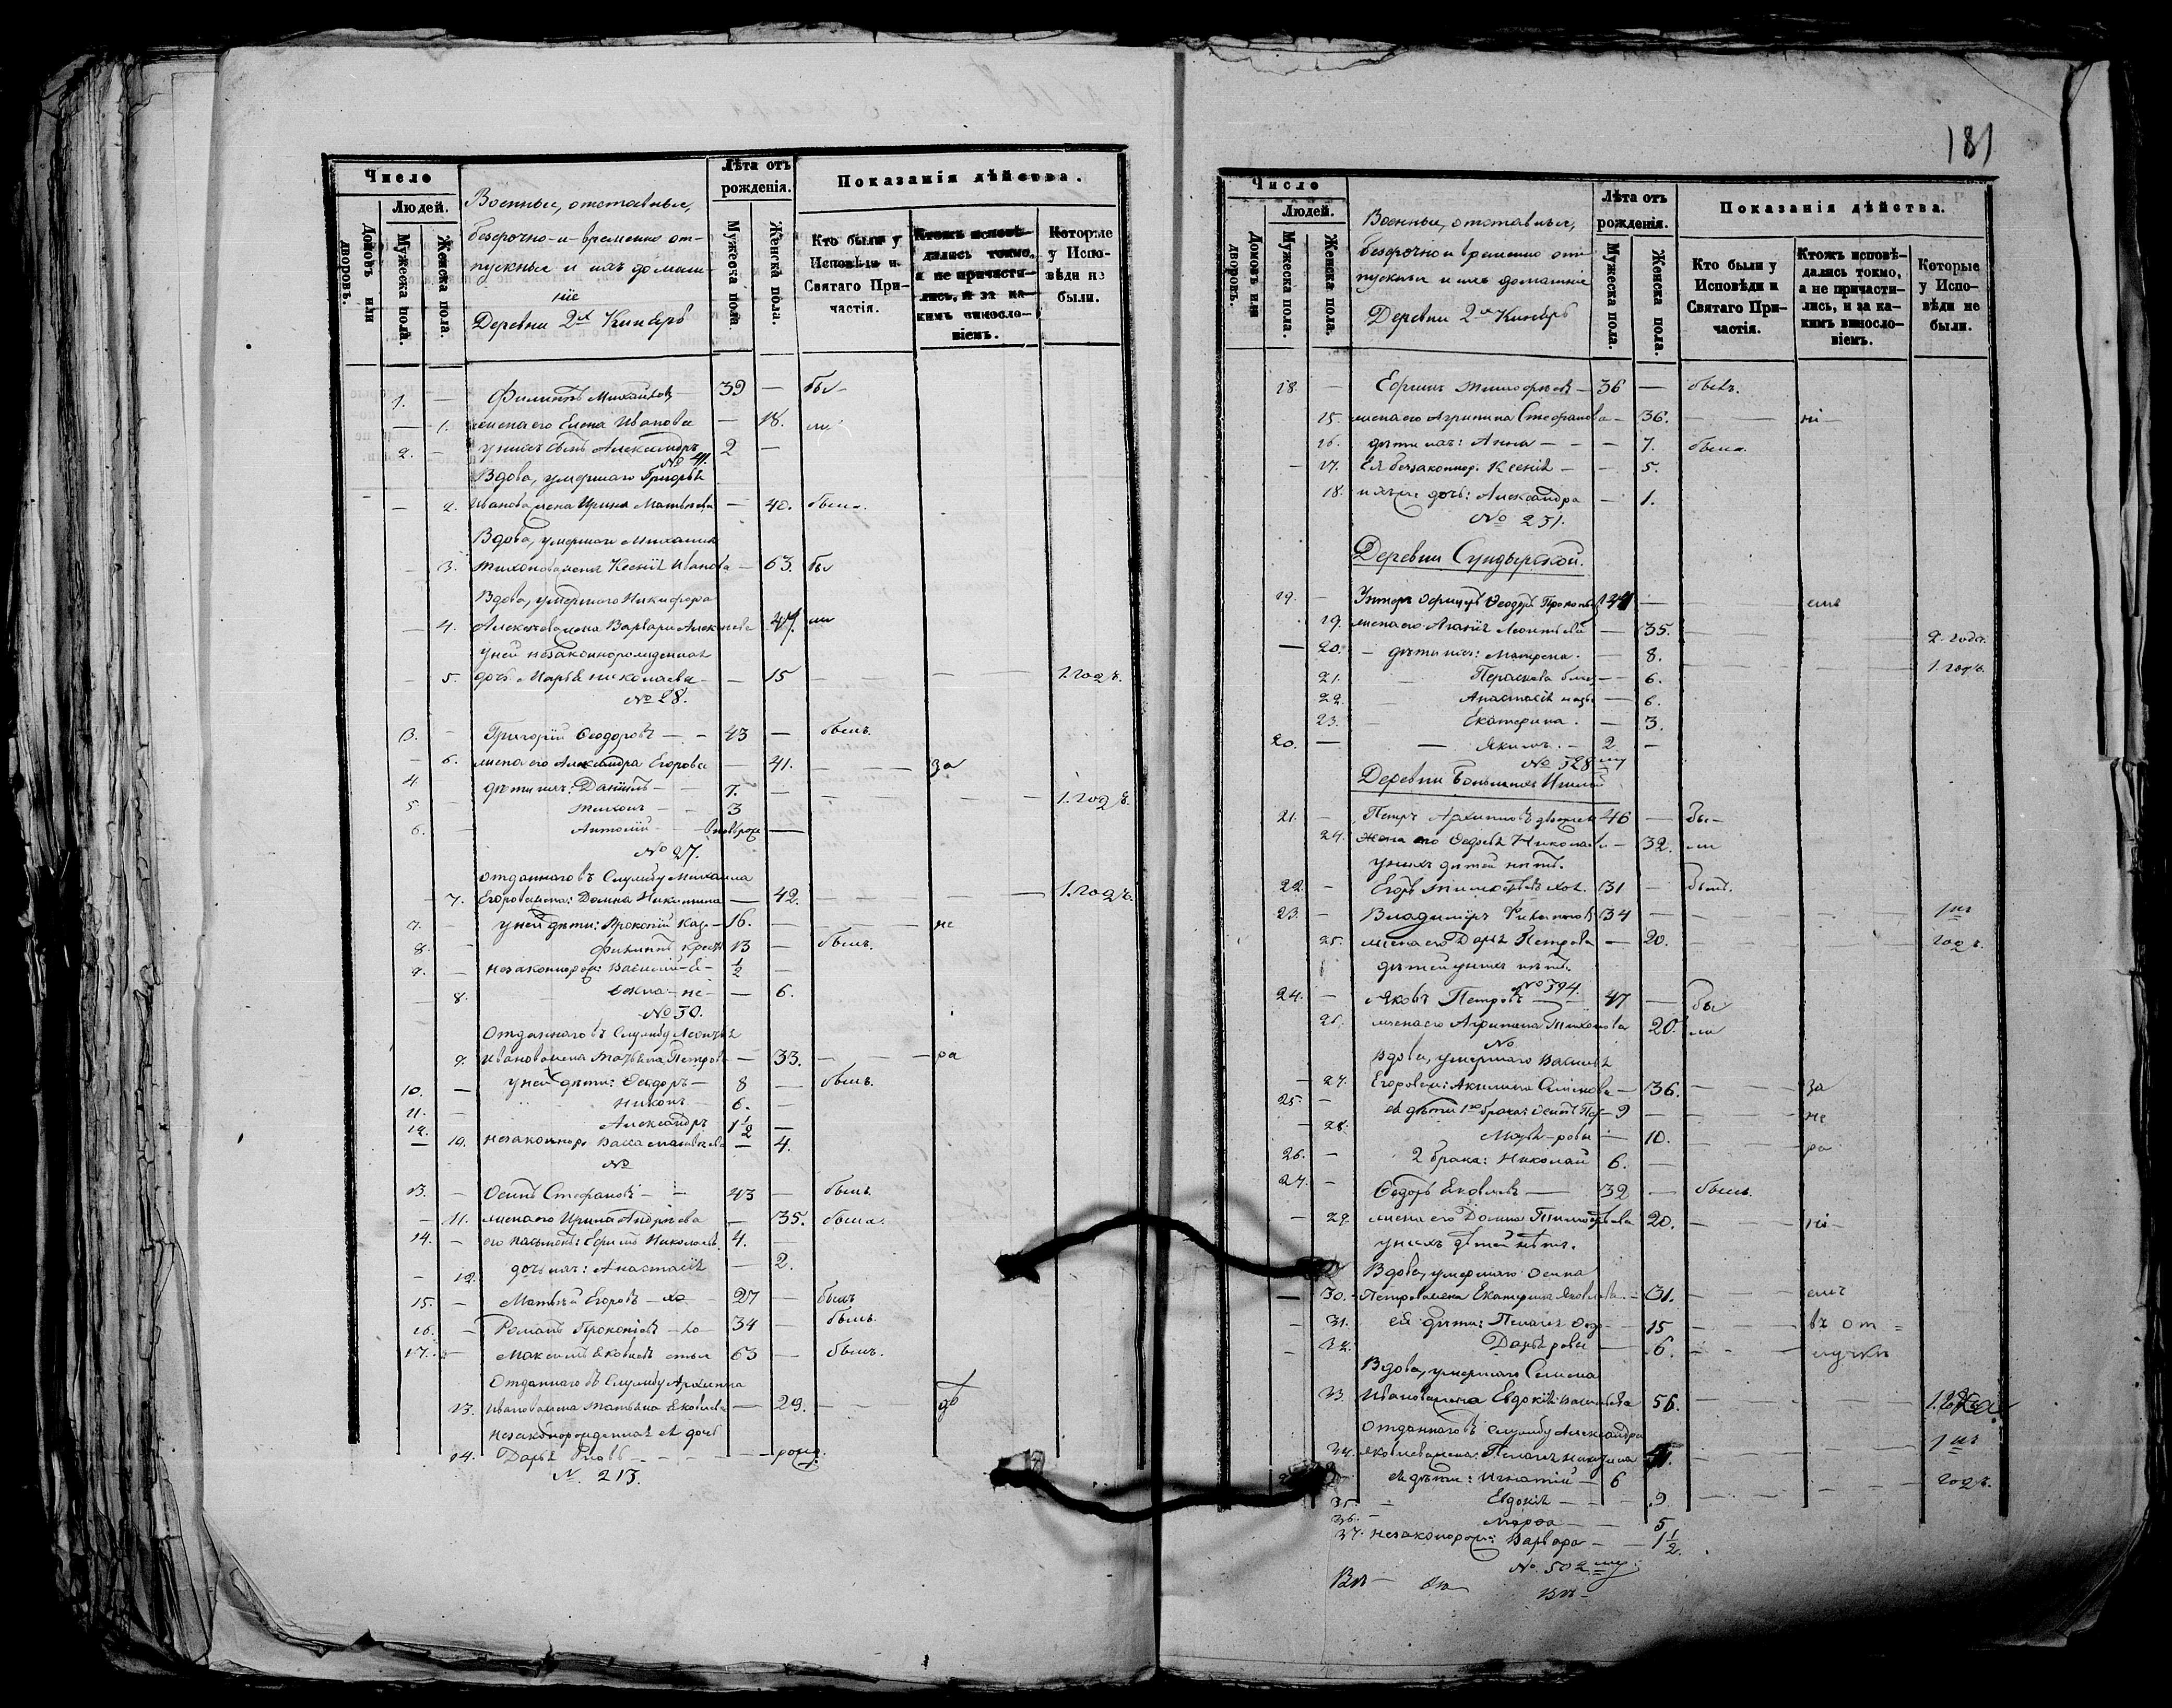 Число
Людей.
Домовъ или дворовъ.
Мужеска пола.
Женска пола.
Военные, отставные,
безсрочно-и-временно от-
пускные и ихъ домаш-
ніе
Деревни 2х Кинеръ
Лѣта отъ рожденія.
Мужеска пола
Женска пола.
Показанія дѣйства.
Кто были у Исповѣди и Святаго При-частія.
Ктожъ исповѣ-дались токмо, а не причасти-лись, и за ка-кимъ винosло-віемъ.
Которые у Испо-вѣди не были.
1. — Филиппъ Михайловъ 39 — бы-
— 1. жена его Елена Иванова — 18. ли
2. — у нихъ сынъ Александръ 2 —
№ 41.
Вдова, умершаго Григорья
— 2. Иванова жена Ирина Матвѣева — 40. была.
Вдова, умершаго Михаила
— 3. Тихонова жена Ксенія Иванова — 63. бы
Вдова, умершаго Никифора
— 4. жена Варвара 47. ли
у ней незаконнорожденная
— 5. дочь Марья Николаева — 15 — — — 1. годъ.
№ 28.
3. — Григорій Ѳеодоровъ — 43 — былъ.
— 6. жена его Александра Егорова — 41. — — за
4 дѣти ихъ: Даніилъ — 7. — — — 1. годъ.
5 Тихонъ — 3
6. — Антоній —
№ 27.
Отданнаго въ Службу Михаила
— 7. Егорова жена: Домна Никитина — 42. — — — 1. годъ.
7. — у ней дѣти: Прокопій — 16. — — не
8. — Филиппъ 13 — былъ.
9. — незаконнорож: Василій — 1/2 —
— 8. — 6.
№ 30.
Отданнаго въ Службу Леонтья
9. Иванова жена Татьяна Петрова — 33. — — ра
10. — у ней дѣти: Ѳеодоръ — 8 — былъ.
11. — Никонъ — 6. —
12. Александръ 1 1/2 —
— 10. незаконнор. Васса — 4.
№
13. — Осипъ Стефановъ — 43 — былъ.
— 11. жена его Ирина Андреева — 35. была.
14. — его пасынокъ: Ефимъ Николаевъ 4. —
— 12. дочь ихъ: Анастасія — 2.
15. — Матвѣй Егоровъ — хо — 27 — былъ
16. — Романъ Прокопіевъ — хо — 34 — былъ.
17. — Максимъ Яковлевъ 63 — былъ.
Отданнаго въ Службу Архиппа
13. Иванова жена Татьяна Яковлева — 29. — —
незаконорожденная ея дочь
14. Дарья — — —
№. 213.
181
Число
Людей.
Домовъ или дворовъ.
Мужеска пола.
Женска пола.
Военные, отставные,
безсрочно и временно от-
пускные и ихъ домашніе
Деревни 2х Кинеръ
Лѣта отъ рожденія.
Мужеска пола.
Женска пола.
Показанія дѣйства.
Кто были у Исповѣди и Святаго При-частія.
Ктожъ исповѣ-дались токмо, а не причасти-лись, и за ка-кимъ винoсло-віемъ.
Которые у Испо-вѣди не были.
18. — Ефимъ Тимофеевъ — 36 — былъ.
15. жена его Агрипина Стефанова — 36. — — ні-
16. дѣти ихъ: Анна — — 7. была.
— 17. Ея беззаконнор. Ксенія — — 5.
18. дочь: Александра — 1.
№ 231.
Деревни Сундырской.
19. — Унтеръ Офицеръ Ѳеодоръ — — емъ
19. жена его Агафія Леонтьева — 35. — — — 2. года.
— 20. — дѣти ихъ: Матрена. — 8. — — 1. годъ.
21. Параскева — 6.
22. Анастасія — 6.
23. — Екатерина. — 3.
20. — — Якимъ. — 2. —
№ 328
Деревни Большихъ
21. — Петръ Архиповъ 46 — бы-
24. Жена его Ѳедосья Николаева — 32. ли
у нихъ дѣтей нѣтъ.
22. — Егоръ Тимофеевъ хол. 31 — былъ.
23. — Владимиръ 34 — — —
25. жена его Дарья Петрова — 20. — — годъ.
дѣтей у нихъ нѣтъ.
№ 394.
24. — Яковъ Петровъ — 47 — бы
26. жена его Агрипина Тихонова 20. ли
№
Вдова, умершаго Василья
— 27. Егорова ж: Акилина Семенова — 36. — — за
25. — ея дѣти 1го брака: Осипъ Пет- 9 — — не
— 28. Марья — ровы — 10. — — ра
26. — 2 брака: Николай 6. —
27. — Ѳедоръ Яковлевъ — 32 — былъ.
— 29. жена его Домна Тимофеева 20. — — ні-
у нихъ дѣтей нѣтъ.
Вдова, умершаго Осипа
— 30. Петрова жена Екатерина Яковлева — 31. — — емъ
— 31. ея дѣти: Пелагея Ѳедо — 15 — — въ от =
— 32. Дарья ровы — 6. — — лучкѣ
Вдова, умершаго Семена
33. Иванова жена Евдокія Васильева 56. — —
Отданнаго въ службу Александра
34. Яковлева жена: Пелагея Никитина — —
— ея дѣти: Игнатій — 6 — — годъ.
35. — Евдокія — — 9.
36. — Марѳа — — 5
37. незаконорож: Варвара — — 1 1/2.
№. 502